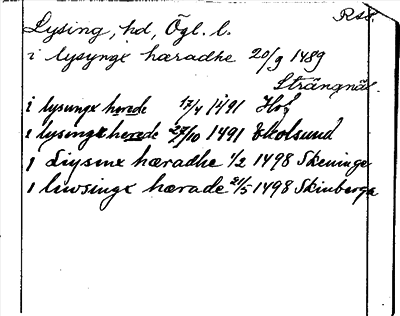 Rss.
Lysing, hd, Ögl. l.
i lysyngx hæradhe 20/9 1489
Strängnäs.
i lysungx herede 17/4 1491 Hof
i lysingx herede 27/10 1491 Ekolsund
i Liysinx hæradhe 1/2 1498 Skeninge
i liwsingx hærade 21/5 1498 Skinberga